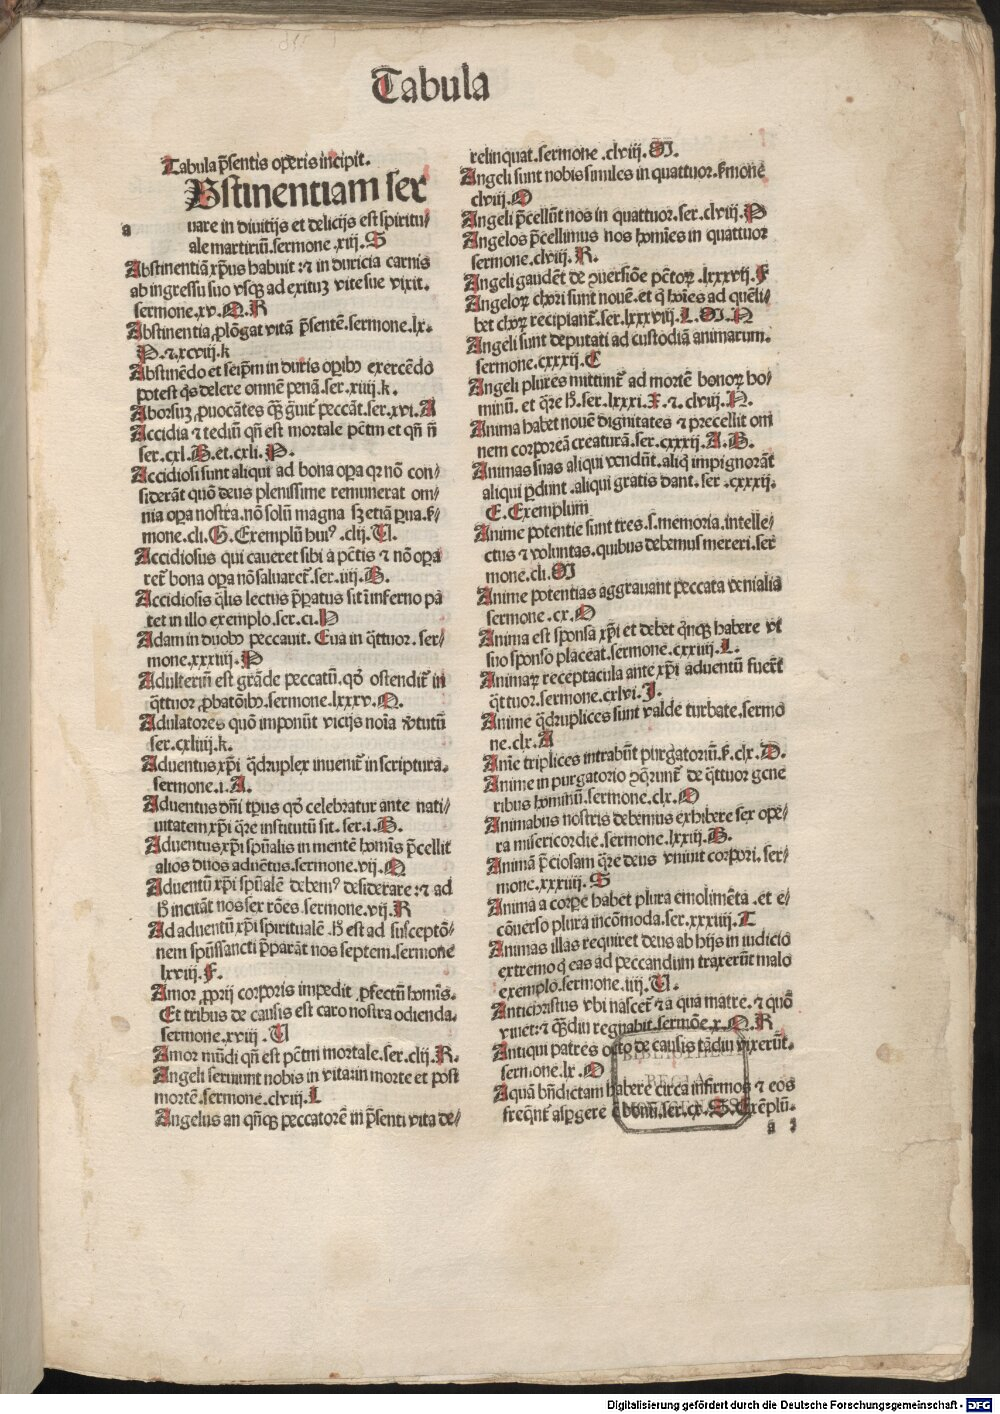 Tabula
Tabula p̃sentis operis incipit.
Bstinentiam ser
a
uare in diuitijs et delicijs est spiritu⸗
ale martiriũ.sermone .xiij.S
Abstinentiã xp̃us habuit :⁊ in duricia carnis
ab ingressu suo vsqꝫ ad exituꝫ vite sue vixit.
sermone.xv.Q.R
Abstinentia ꝓlõgat vitã p̃sentẽ.sermone.lx.
P.⁊.xcviij.k
Abstinẽdo et seip̃m in duris oꝑibꝰ exercẽdo
potest q̃s delere omnẽ penã.ser.xiiij.k.
Aborsuꝫ ꝓuocãtes qꝫ̃ g̃uit̃ peccãt.ser.xvi.A
Accidia ⁊ tediũ qñ est mortale pctm̃ et qñ nõ
ser.cxl.B.et.cxli.P.
Accidiosi sunt aliqui ad bona oꝑa qꝛ nõ con⸗
siderãt quõ deus plenissime remunerat om⸗
nia oꝑa nostra.nõ solũ magna sꝫ etiã ꝑua.s̃⸗
mone.cli.G.Exemplũ huiꝰ .clij.U.
Accidiosus qui caueret sibi a pctĩs ⁊ nõ oꝑa
ret̃ bona oꝑa nõ saluaret̃.ser.iiij.B.
Accidiosis q̃lis lectus p̃ꝑatus sit ĩ inferno pa
tet in illo exemplo.ser.ci.P
Adam in duobꝰ peccauit. Eua in q̃ttuor. ser⸗
mone.xxxiiij.P
Adulteriũ est grãde peccatũ.qd̃ ostendit̃ in
q̃ttuor ꝓbatõibꝰ.sermone.lxxxv.Q.
Adulatores quõ imponũt vicijs noĩa v̾tutũ
ser.cxliiij.k.
Aduentus xp̃i q̃druplex inuenit̃ in scriptura.
sermone.i.A.
Aduentus dñi tp̃us qd̃ celebratur ante nati⸗
uitatem xp̃i q̃re institutũ sit. ser.i.B.
Aduentus xp̃i sp̃ualis in mentẽ hoĩs p̃cellit
alios duos aduẽtus.sermone.vij.Q
Aduentũ xp̃i sp̃ualẽ debemꝰ desiderare:⁊ ad
h̃ incitãt nos sex rões.sermone.vij.R
Ad aduentũ xp̃i spiritualẽ .h̃ est ad susceptõ⸗
nem sp̃ussancti p̃parãt nos septem.sermone
lxviij.F.
Amor ꝓprij corporis impedit ꝓfectũ homĩs.
Et tribus de causis est caro nostra odienda.
sermone.xviij .U
Amor mũdi qñ est pctm̃ mortale.ser.clij.R.
Angeli seruiunt nobis in vita:in morte et post
mortẽ.sermone.clviij.L
Angelus an qñqꝫ peccatorẽ in p̃senti vita de⸗
relinquat.sermone .clviij.M.
Angeli sunt nobis similes in quattuor.s̃mone
clviij.O
Angeli p̃cellũt nos in quattuor.ser.clviij.P
Angelos p̃cellimus nos homĩes in quattuor
sermone.clviij.R.
Angeli gaudẽt de ꝯuersiõe pctõꝝ .lxxxvij.F
Angeloꝝ chori sunt nouẽ.et q̃ hoĩes ad quẽli⸗
bet choꝝ recipiant̃.ser.lxxxviij.L.M.N
Angeli sunt deputati ad custodiã animarum.
sermone.cxxxij.C
Angeli plures mittunt̃ ad mortẽ bonoꝝ ho⸗
minũ. et q̃re h̃.ser.lxxxi.X.⁊.clviij.N.
Anima habet nouẽ dignitates ⁊ precellit om
nem corporeã creaturã.ser.cxxxij.A.B.
Animas suas aliqui vendũt.aliq̃ impignorãt
aliqui ꝑdunt .aliqui gratis dant. ser .cxxxij.
E.Exemplum
Anime potentie sunt tres.s.memoria.intelle⸗
ctus ⁊ voluntas.quibus debemus mereri.ser
mone.cli.M
Anime potentias aggrauant peccata venialia
sermone .cx.O
Anima est sponsa xp̃i et debet qñqꝫ habere vt
suo sponso placeat.sermone.cxxiiij.L.
Animaꝝ receptacula ante xp̃i aduentũ fuerũt
q̃ttuor.sermone.cxlvi.J.
Anime q̃druplices sunt valde turbate.sermo
ne.clx.A
Anĩe triplices intrabũt purgatoriũ.s̃.clx.D.
Anime in purgatorio ꝯq̃runt̃ de q̃ttuor gene
ribus hominũ.sermone.clx.O
Animabus nostris debemus exhibere sex ope⸗
ra misericordie.sermone.lxxiij.B.
Animã p̃ciosam q̃re deus vniuit corpori. ser⸗
mone.xxxiiij.S
Anima a corꝑe habet plura emolimẽta .et e⸗
cõuerso plura incõmoda.ser.xxxiiij.T
Animas illas requiret deus ab hijs in iudicio
extremo q̃ eas ad peccandum traxerũt malo
exemplo.sermone.iiij.U.
Antichristus vbi nascet̃ ⁊ a qua matre. ⁊ quõ
viuet:⁊ qꝫ̃diu regnabit.sermõe.x.Q.R
Antiqui patres octo de causis tãdiu vixerũt.
sermone.lx.O
Aquã bñdictam habere circa infirmos ⁊ eos
freq̃nt̃ asꝑgere ẽ bonũ.ser.cx.S.Exẽplũ.
a 2
BIBLIOTHECA
REGIA
MONACENSIS
Digitalisierung gefördert durch die Deutsche Forschungsgemeinschaft - DFG